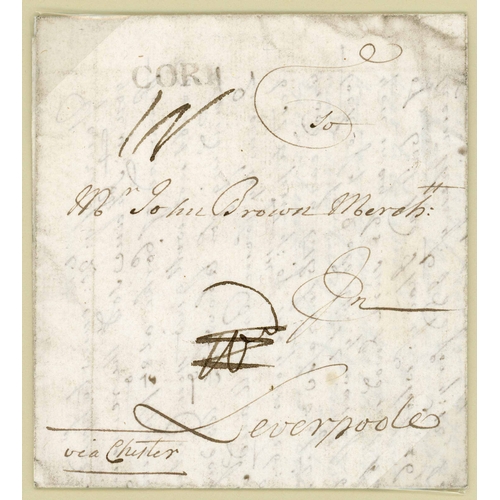 CORK
To
Mr John Brown Mercht:
In
Leverpoole
via Chester